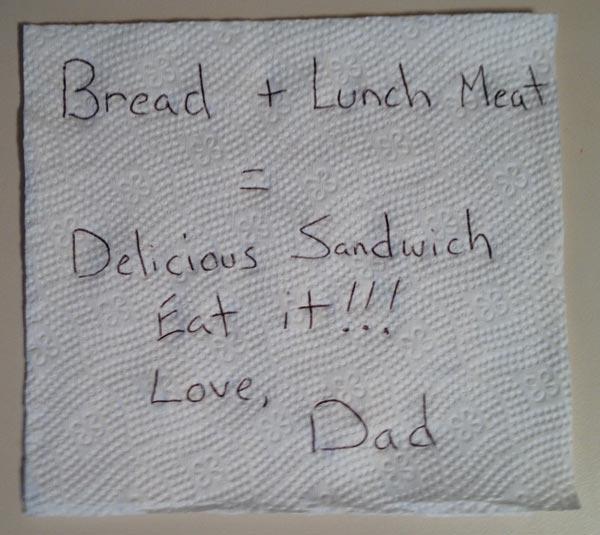 Bread + Lunch Meat
=
Delicious Sandwich
Eat it!!!
Love,
Dad